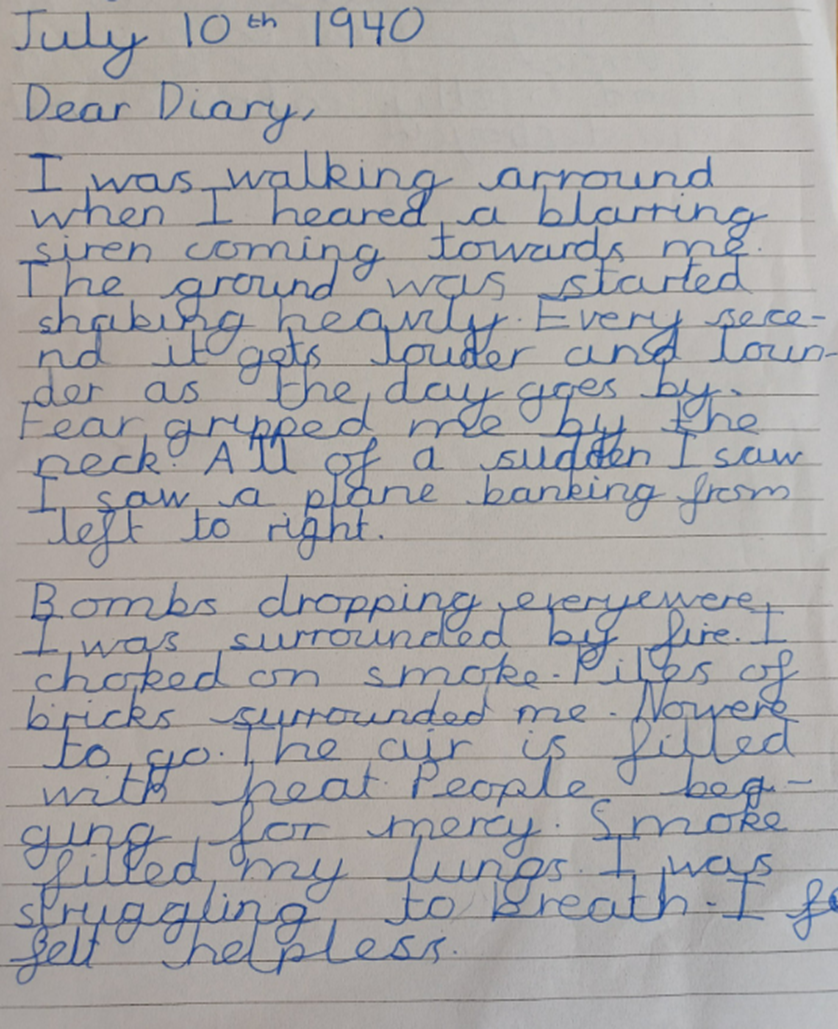 July 10th 1940
Dear Diary,
I was walking arround
when I heared a blarring
siren coming towards me.
The ground was started
shaking heavily. Every sece-
nd it gets louder and loun-
der as the day goes by.
Fear gripped me by the
neck. All of a sudden I saw
I saw a plane banking from
left to right.
Bombs dropping everyewere,
I was surrounded by fire. I
choked on smoke. Piles of
bricks surrounded me. Nowere
to go. The air is filled
with heat. People beg-
ging for mercy. Smoke
filled my lungs. I was
struggling to breath. I fe
felt helpless.